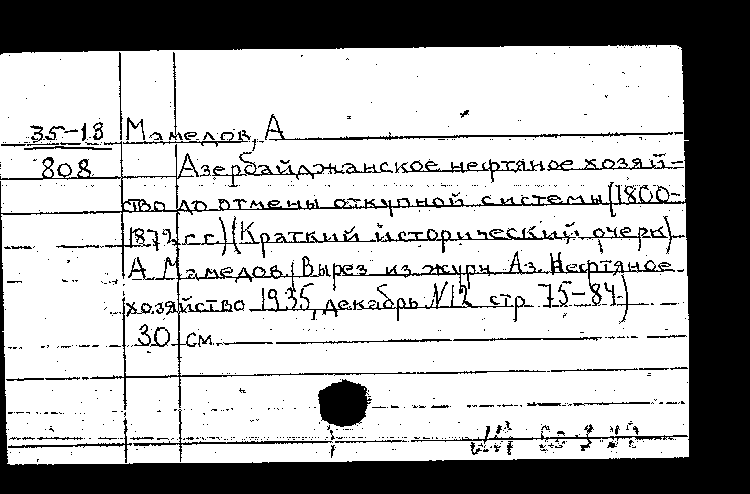 35-13 Мамедов, А
808 Азербайджанское нефтяное хозяй-
ство до отмены откупной системы (1800-
1872 г.г.) (Краткий исторический очерк)
А Мамедов (Вырез из журн Аз. Нефтяное
хозяйство 1935, декабрь N12 стр 75-84)
30 см